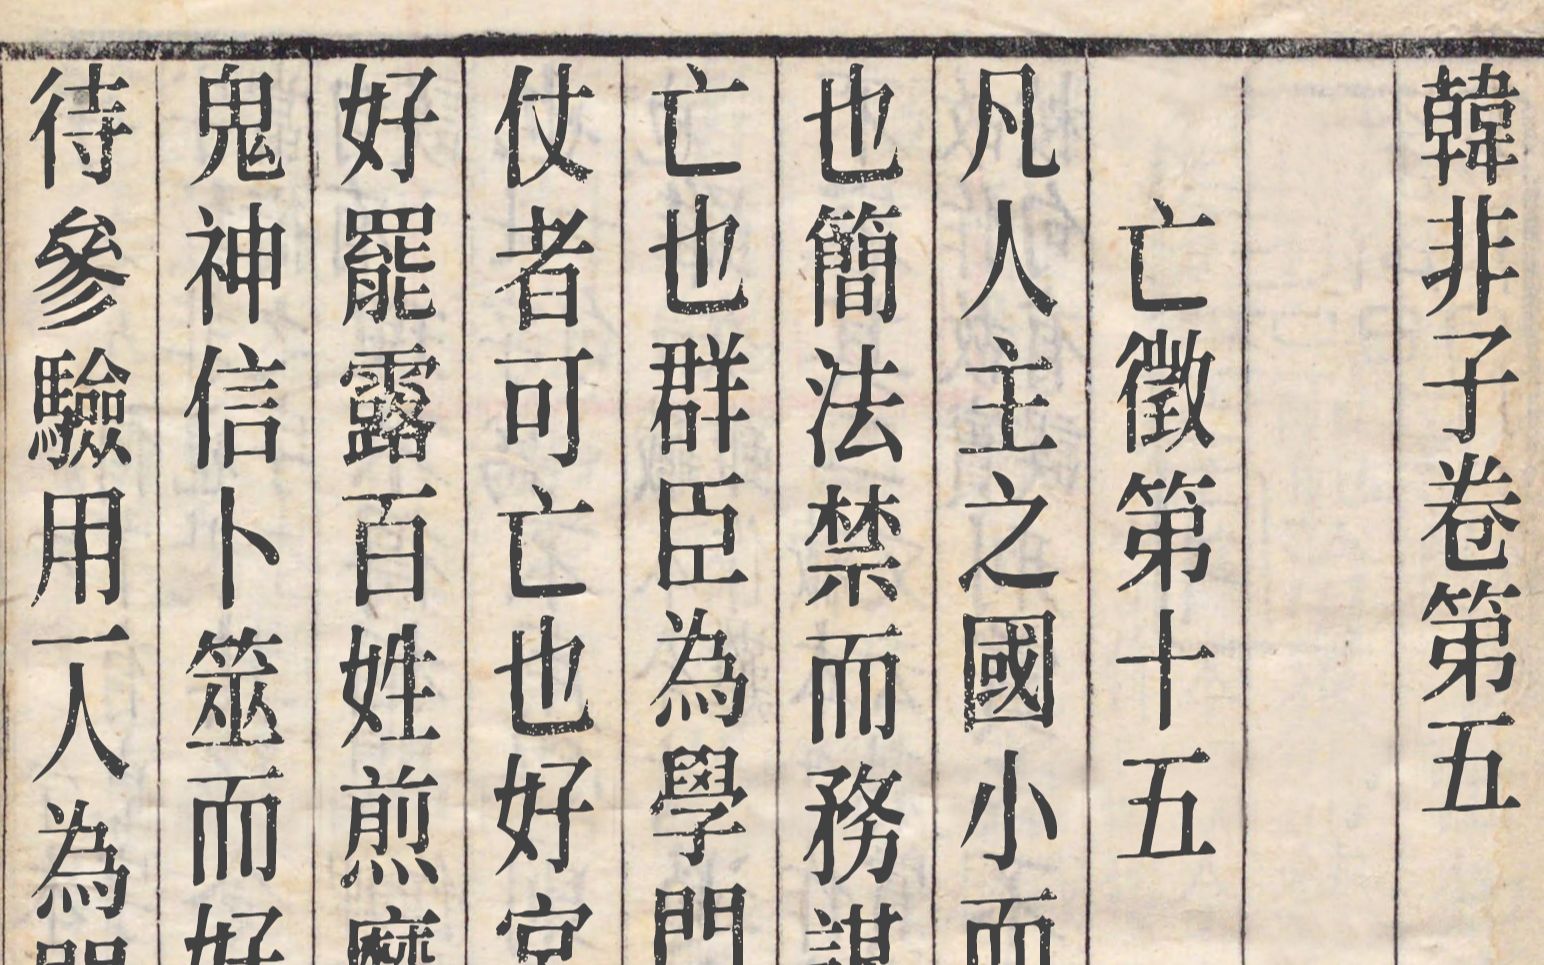 韓非子卷第五
亡徵第十五
凡人主之國小而
也簡法禁而務謀
亡也群臣為學門
仗者可亡也好宮
好罷露百姓煎靡
鬼神信卜筮而好
待參驗用一人為門